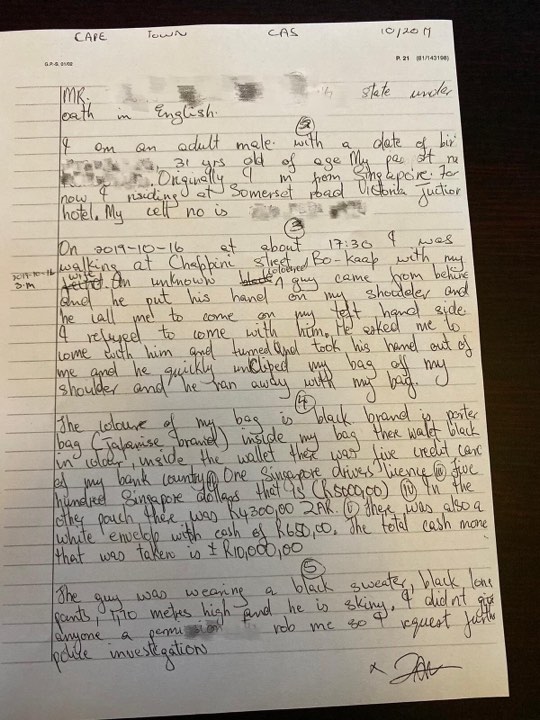 CAPE TOWN CAS 10/2019
G.P.-S. 01/02 P. 21 (81/143198)
MR. state under
oath in English.
②
I am an adult male with a date of bir
, 31 yrs old of age My pas
. Originally I m from Singapore. For
now I residing at Somerset road Victoria Juctior
hotel. My cell no is
③
On 2019-10-16 at about 17:30 I was
walking at Chappini street, Bo-kaap with my
2019-10-16 wife An unknown coloured guy came from behine
and he put his hand on my shoulder and
he call me to come on my left hand side.
I refused to come with him. He asked me to
come with him and turned and took his hand out of
me and he quickly unclibed my bag off my
shoulder and he ran away with my bag.
④
The coloure of my bag is black brand is porter
bag (Japanise brand) inside my bag there walet black
in colour, inside the wallet there was five credit care
of my bank country One Singapore drivers licence five
hundred Singapore dollars that is (R5000,00) In the
other pouch there was R4300,00 ZAR. There was also a
white envelop with cash of R650,00. The total cash mone
that was taken is ± R10,000,00
⑤
The guy was wearing a black sweater, black lone
pants, 1,70 metres high and he is skiny. I didn't give
anyone a permi rob me so I request
police investigation
x